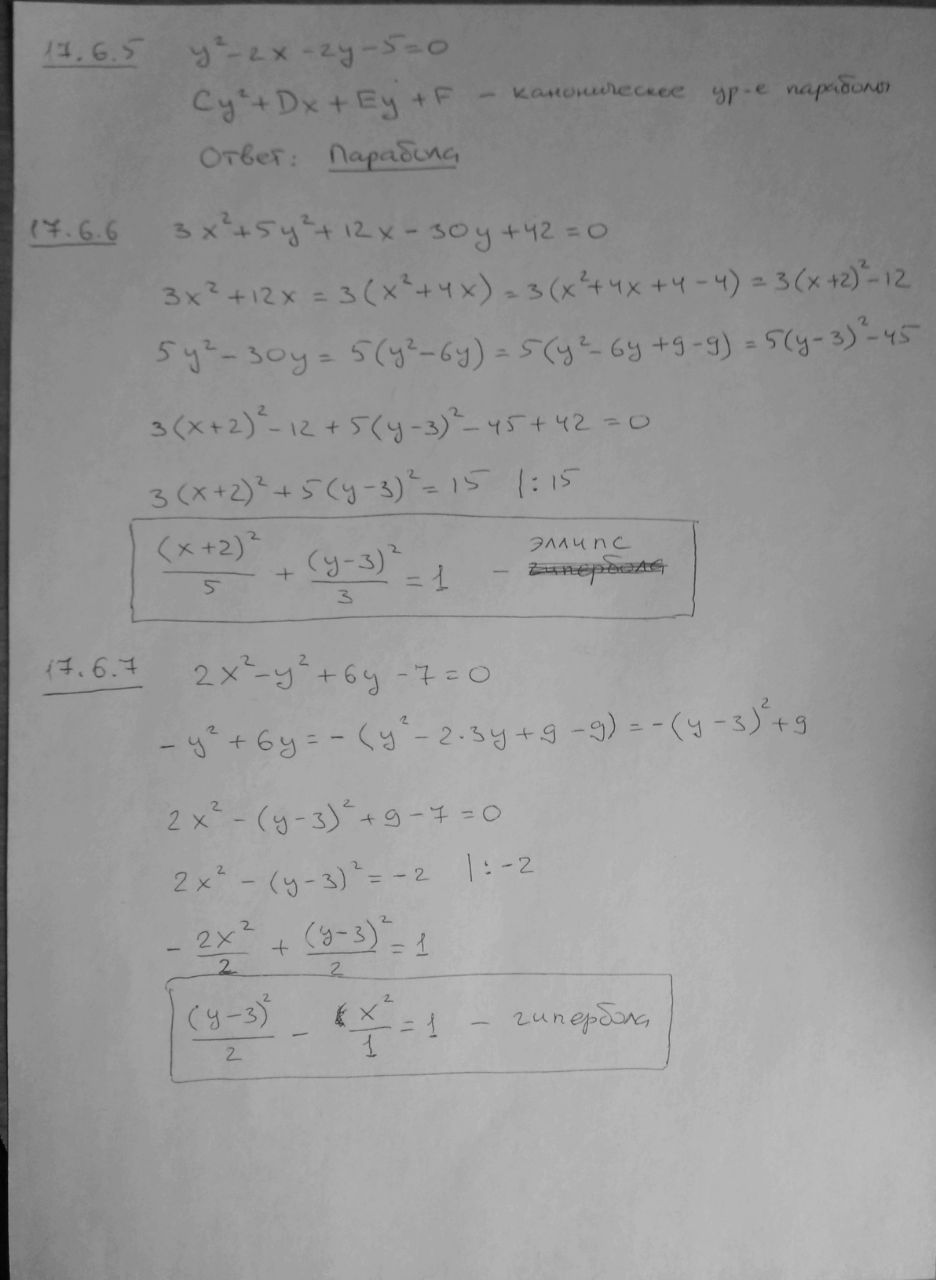 17.6.5 y²-2x-2y-5=0
Cy²+Dx+Ey+F - каноническое ур-е параболы
Ответ: Парабола
17.6.6 3x²+5y²+12x-30y+42=0
3x²+12x=3(x²+4x)=3(x²+4x+4-4)=3(x+2)²-12
5y²-30y=5(y²-6y)=5(y²-6y+9-9)=5(y-3)²-45
3(x+2)²-12+5(y-3)²-45+42=0
3(x+2)²+5(y-3)²=15 |:15
(x+2)²/5 + (y-3)²/3 = 1 - эллипс ~~гипербола~~
17.6.7 2x²-y²+6y-7=0
-y²+6y=-(y²-2·3y+9-9)=-(y-3)²+9
2x²-(y-3)²+9-7=0
2x²-(y-3)²=-2 |:-2
-2x²/2 + (y-3)²/2 = 1
(y-3)²/2 - x²/1 = 1 - гипербола